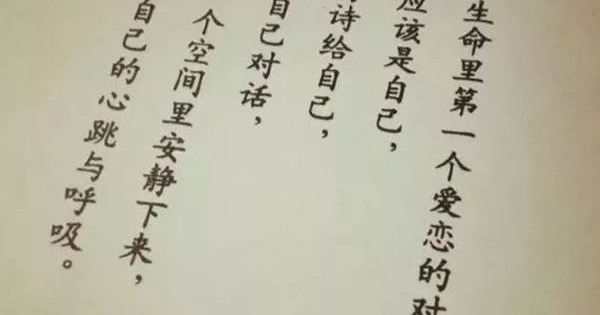 生命里第一个爱恋的对
应该是自己，
诗给自己，
自己对话，
个空间里安静下来，
自己的心跳与呼吸。